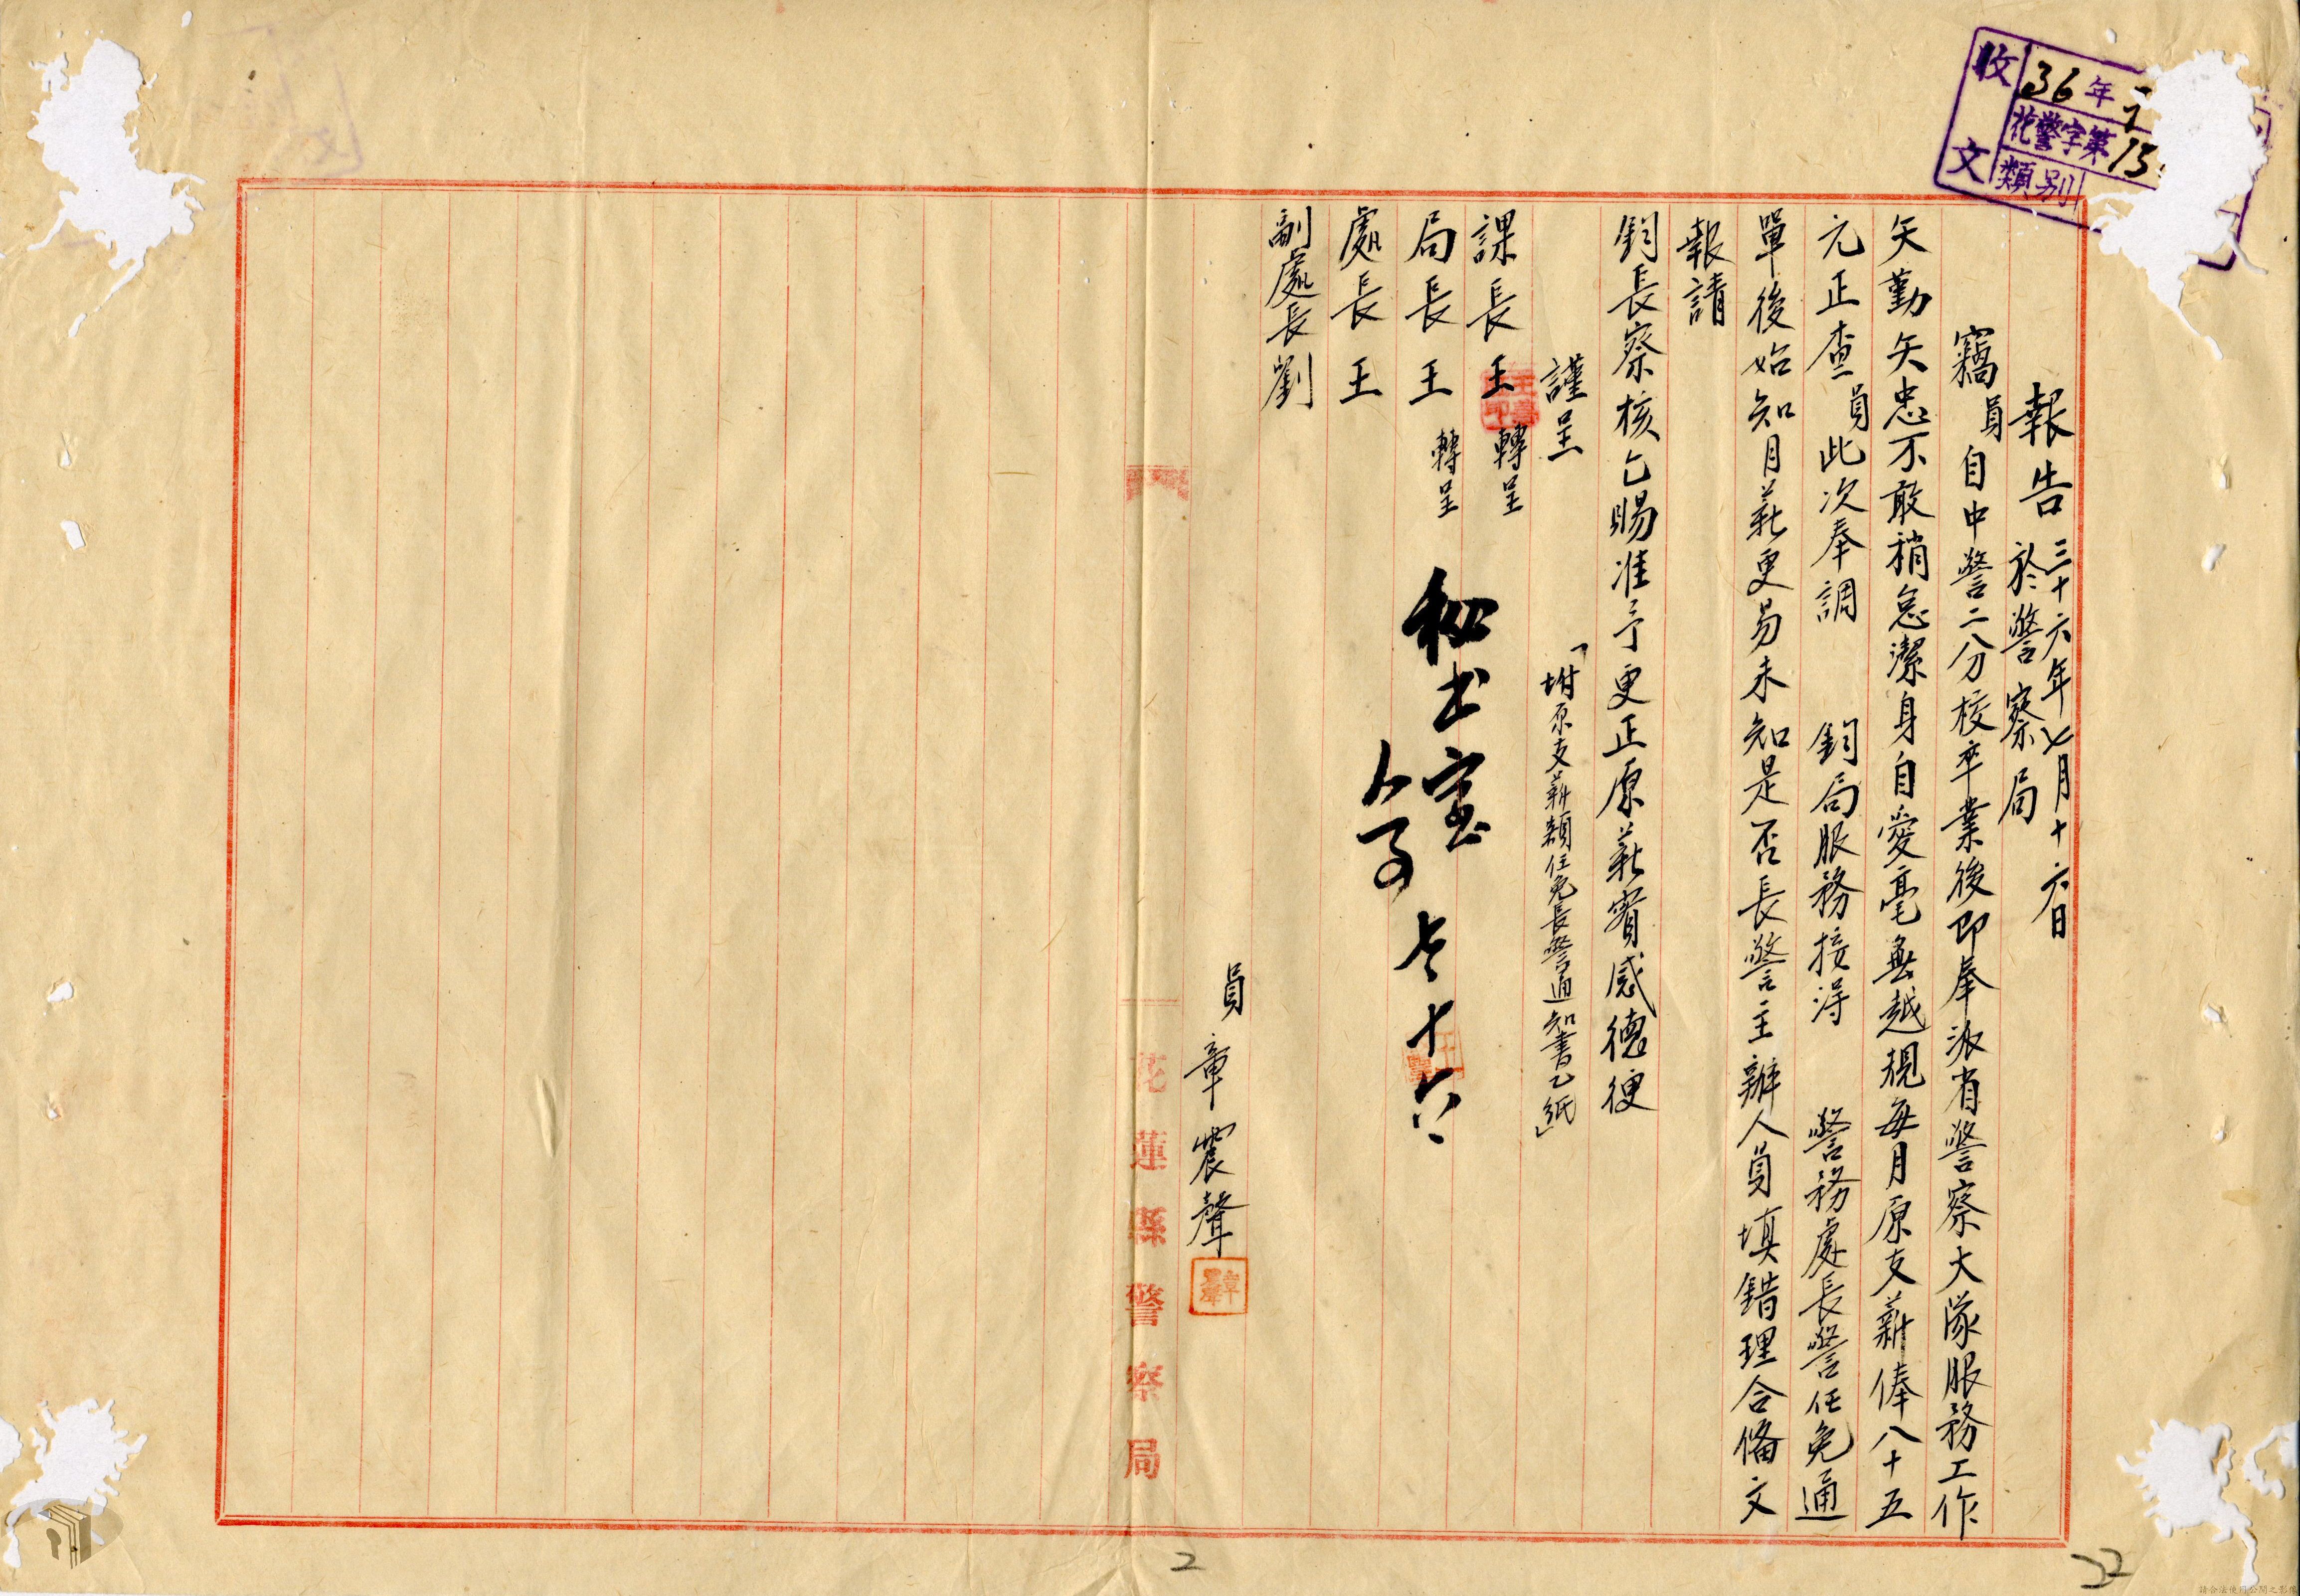 收文
36年
花警字第13
類別
報告 三十六年七月十六日
於警察局
竊員自中警二分校卒業後即奉派省警察大隊服務工作
矢勤矢忠不敢稍怠潔身自愛毫無越規每月原支薪俸八十五
元正查員此次奉調 鈞局服務接得 警務處長警任免通
單後始知月薪更易未知是否長警主辦人員填錯理合備文
報請
鈞長察核乞賜准予更正原薪實感德便
謹呈 「坿原支薪額任免長警通知書乙紙」
課長王 轉呈
局長王 轉呈
處長王
副處長劉
秘书室
七 十六
員 章震聲
花蓮縣警察局
2
22
請合法使用公開之影像